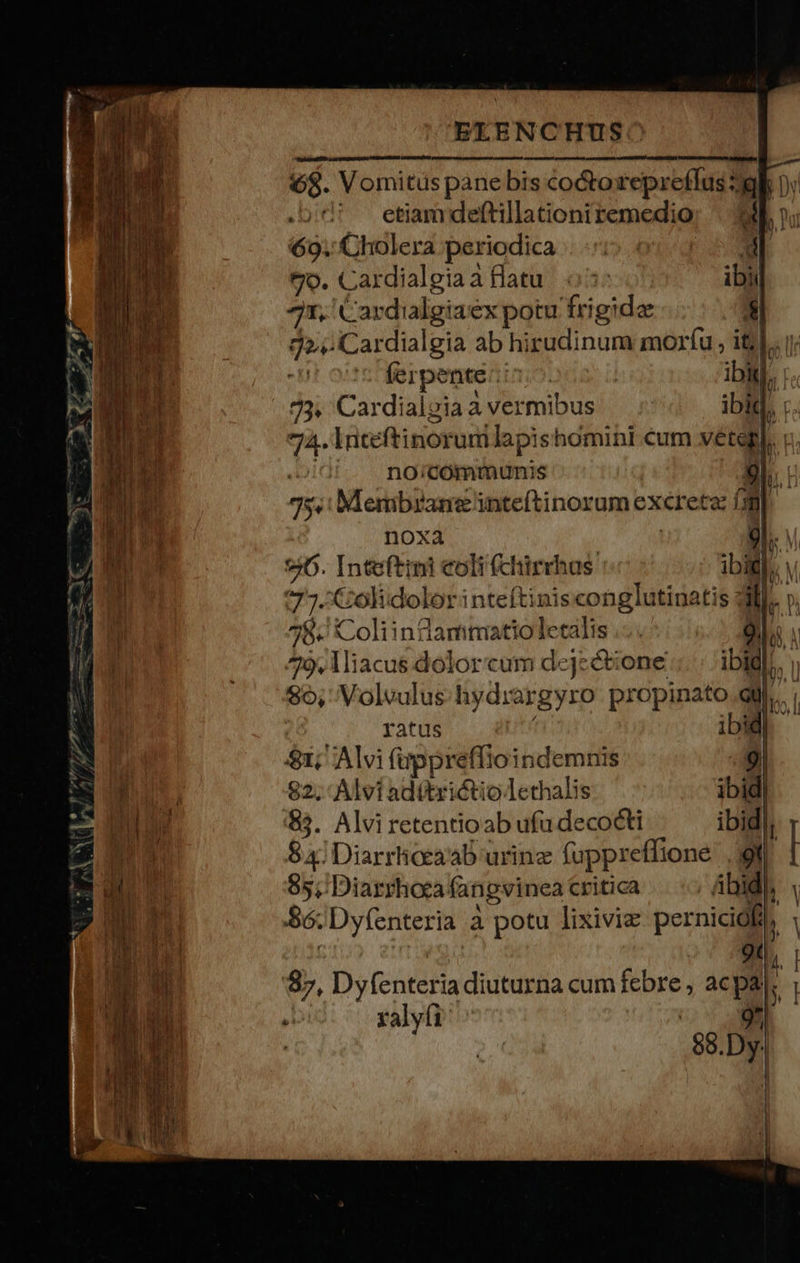 ELENCHUS
68. Vomitus pane bis cocto repreſſus
etiam deſtillationi remedio
69. Cholera periodica
70. Cardialgia à flatu ibid
71. Cardialgia ex potu frigidæ
72. Cardialgia ab hirudinum morſu, it
ſerpente ibid
73. Cardialgia à vermibus ibid
74. Inteſtinorum lapis homini cum veter
no communis
75. Membranæ inteſtinorum excretæ ſin
noxa
76. Inteſtini coli ſchirrhus ibid
77. Coli dolor inteſtinis conglutinatis
78. Coli inflammatio letalis
79. Iliacus dolor cum dejectione ibid
80. Volvulus hydrargyro propinato cu
ratus ibid
81. Alvi ſuppreſſio indemnis 9
82. Alvi adſtrictio lethalis ibid
83. Alvi retentio ab uſu decocti ibid
84. Diarrhœa ab urinæ ſuppreſſione
85. Diarrhœa ſangvinea critica ibid
86. Dyſenteria à potu lixiviæ pernicioſ
87. Dyſenteria diuturna cum febre, ac pa
ralyſi
88. Dy